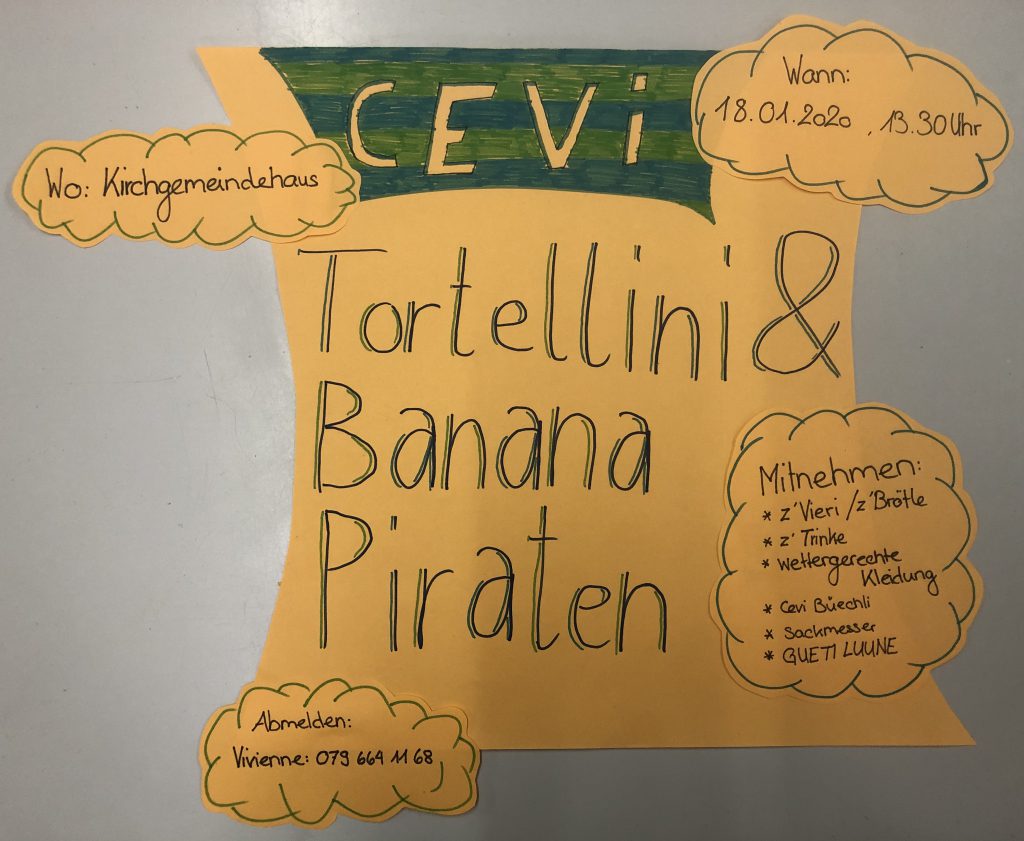 CEVi
Wann:
18.01.2020, 13.30 Uhr
Wo: Kirchgemeindehaus
Tortellini &
Banana
Piraten
Mitnehmen:
* z'Vieri / z'Brötle
* z'Trinke
* Wettergerechte
Kleidung
* Cevi Büechli
* Sackmesser
* GUETI LUUNE
Abmelden:
Vivienne: 079 664 11 68